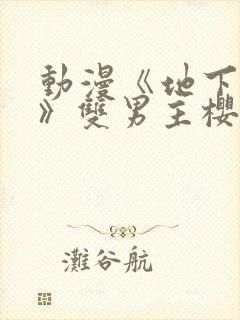 動漫《地下
》雙男主櫻
灘谷航